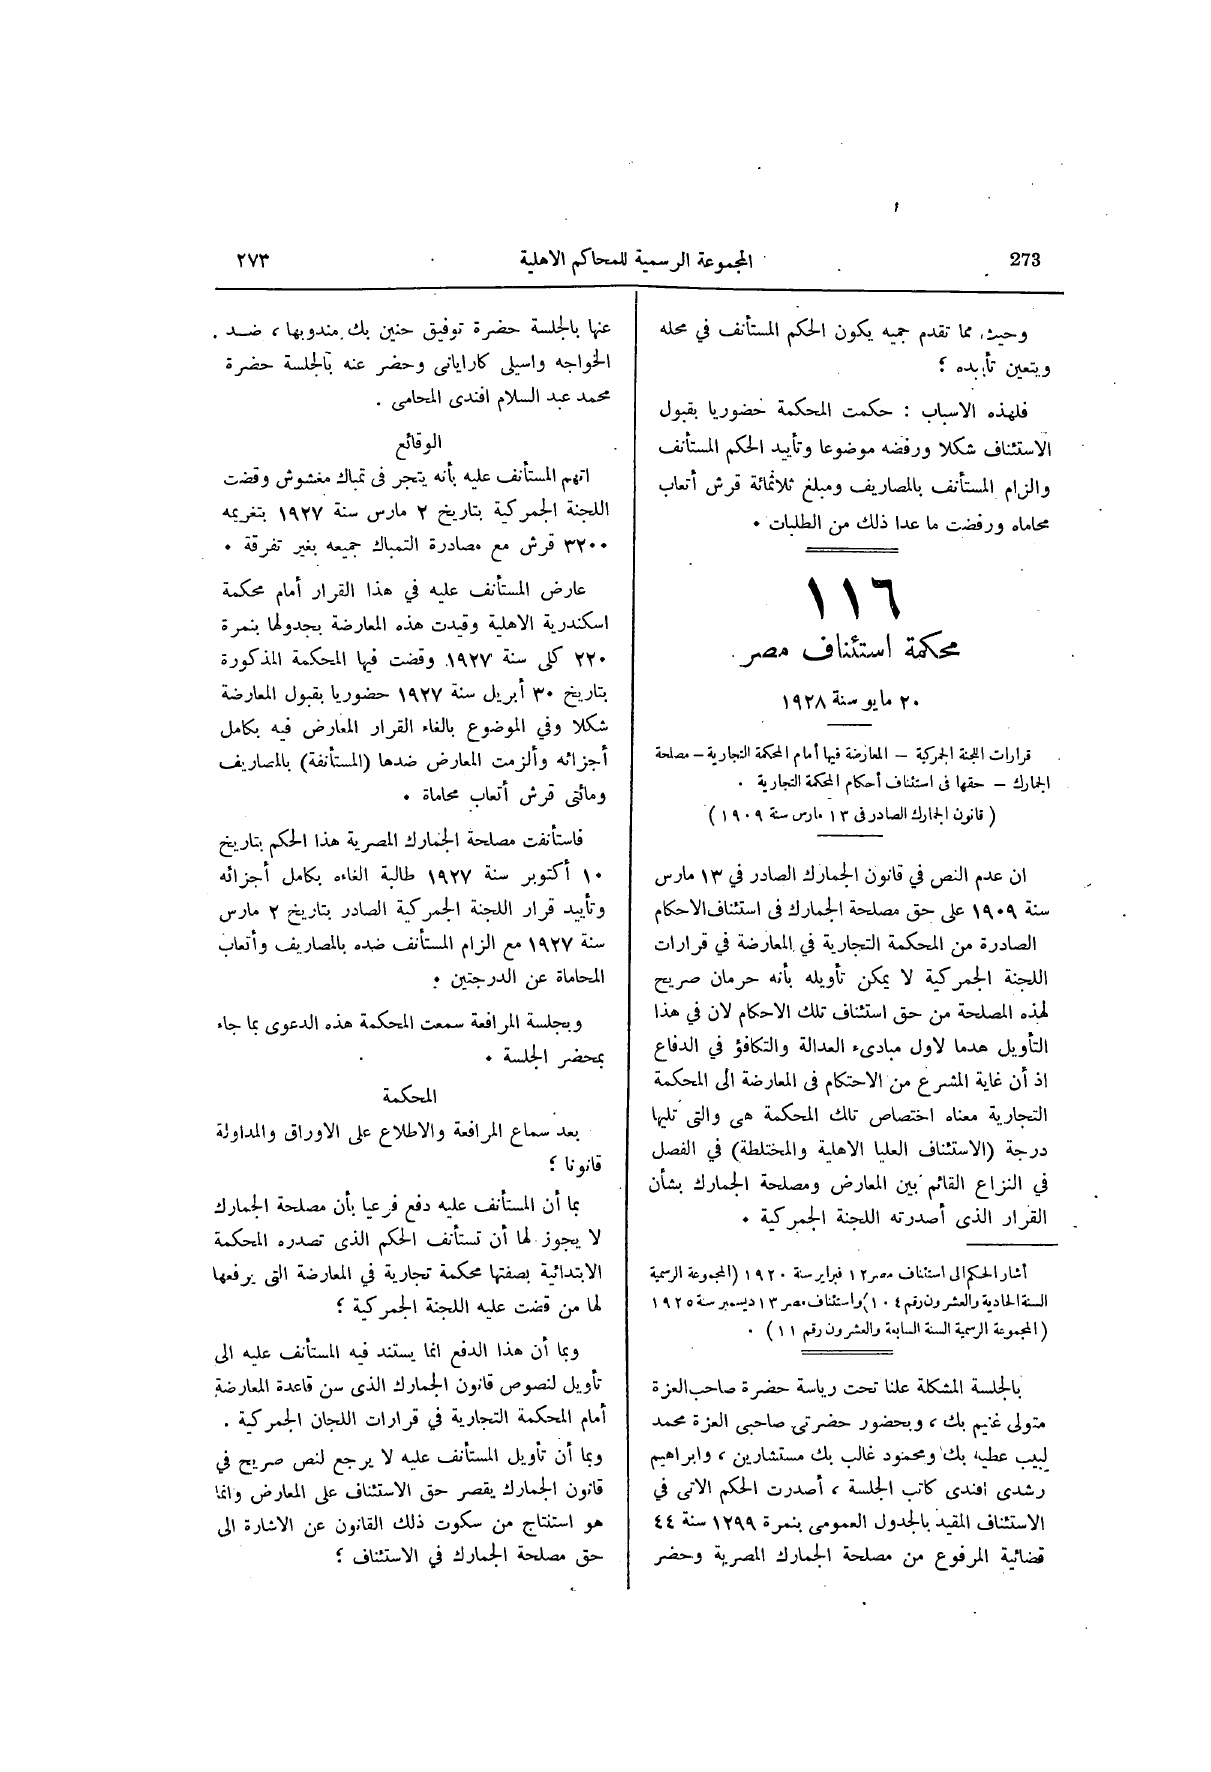 273 المجموعة الرسمية للمحاكم الاهلية ٢٧٣
وحيث مما تقدم جميه يكون الحكم المستأنف في محله
ويتعين تأييده ؟
فلهذه الاسباب : حكمت المحكمة حضوريا بقبول
الاستئناف شكلا ورفضه موضوعا وتأييد الحكم المستأنف
والزام المستأنف بالمصاريف ومبلغ ثلاثمائة قرش أتعاب
محاماه ورفضت ما عدا ذلك من الطلبات .
١١٦
محكمة استئناف مصر
٢٠ مايو سنة ١٩٢٨
قرارات اللجنة الجمركية – المعارضة فيها أمام المحكمة التجارية – مصلحة
الجمارك – حقها فى استئناف أحكام المحكمة التجارية .
( قانون الجمارك الصادر فى ١٣ مارس سنة ١٩٠٩ )
ان عدم النص في قانون الجمارك الصادر في ١٣ مارس
سنة ١٩٠٩ على حق مصلحة الجمارك فى استئناف الاحكام
الصادرة من المحكمة التجارية في المعارضة في قرارات
اللجنة الجمركية لا يمكن تأويله بأنه حرمان صريح
لهذه المصلحة من حق استئناف تلك الاحكام لان في هذا
التأويل هدما لاول مبادىء العدالة والتكافؤ في الدفاع
اذ أن غاية المشرع من الاحتكام فى المعارضة الى المحكمة
التجارية معناه اختصاص تلك المحكمة هى والتى تليها
درجة (الاستئناف العليا الاهلية والمختلطة) في الفصل
في النزاع القائم بين المعارض ومصلحة الجمارك بشأن
القرار الذى أصدرته اللجنة الجمركية .
أشار الحكم الى استئناف مصر ١٢ فبراير سنة ١٩٢٠ (المجموعة الرسمية
السنة الحادية والعشرون رقم ١٠٤) واستئناف مصر ١٣ ديسمبر سنة ١٩٢٥
( المجموعة الرسمية السنة السابعة والعشرون رقم ١١ ) .
بالجلسة المشكلة علنا تحت رياسة حضرة صاحب العزة
متولى غنيم بك ، وبحضور حضرتى صاحبى العزة محمد
لبيب عطيه بك ومحمود غالب بك مستشارين ، وابراهيم
رشدى افندى كاتب الجلسة ، أصدرت الحكم الاتى في
الاستئناف المقيد بالجدول العمومى بنمرة ١٢٩٩ سنة ٤٤
قضائية المرفوع من مصلحة الجمارك المصرية وحضر
عنها بالجلسة حضرة توفيق حنين بك مندوبها ، ضد
الخواجه واسيلى كاراياني وحضر عنه بالجلسة حضرة
محمد عبد السلام افندى المحامى .
الوقائع
اتهم المستأنف عليه بأنه يتجر فى تمباك مغشوش وقضت
اللجنة الجمركية بتاريخ ٢ مارس سنة ١٩٢٧ بتغريمه
٣٢٠٠ قرش مع مصادرة التمباك جميعه بغير تفرقة .
عارض المستأنف عليه في هذا القرار أمام محكمة
اسكندرية الاهلية وقيدت هذه المعارضة بجدولها بنمرة
٢٢٠ كلى سنة ١٩٢٧ وقضت فيها المحكمة المذكورة
بتاريخ ٣٠ أبريل سنة ١٩٢٧ حضوريا بقبول المعارضة
شكلا وفي الموضوع بالغاء القرار المعارض فيه بكامل
أجزائه وألزمت المعارض ضدها (المستأنفة) بالمصاريف
ومائتى قرش أتعاب محاماة .
فاستأنفت مصلحة الجمارك المصرية هذا الحكم بتاريخ
١٠ أكتوبر سنة ١٩٢٧ طالبة الغاءه بكامل أجزائه
وتأييد قرار اللجنة الجمركية الصادر بتاريخ ٢ مارس
سنة ١٩٢٧ مع الزام المستأنف ضده بالمصاريف وأتعاب
المحاماة عن الدرجتين .
وبجلسة المرافعة سمعت المحكمة هذه الدعوى بما جاء
بمحضر الجلسة .
المحكمة
بعد سماع المرافعة والاطلاع على الاوراق والمداولة
قانونا ؟
بما أن المستأنف عليه دفع فرعيا بأن مصلحة الجمارك
لا يجوز لها أن تستأنف الحكم الذى تصدره المحكمة
الابتدائية بصفتها محكمة تجارية في المعارضة التى يرفعها
لها من قضت عليه اللجنة الجمركية ؟
وبما أن هذا الدفع انما يستند فيه المستأنف عليه الى
تأويل لنصوص قانون الجمارك الذى سن قاعدة المعارضة
أمام المحكمة التجارية في قرارات اللجان الجمركية .
وبما أن تأويل المستأنف عليه لا يرجع لنص صريح في
قانون الجمارك يقصر حق الاستئناف على المعارض وانما
هو استنتاج من سكوت ذلك القانون عن الاشارة الى
حق مصلحة الجمارك في الاستئناف ؟